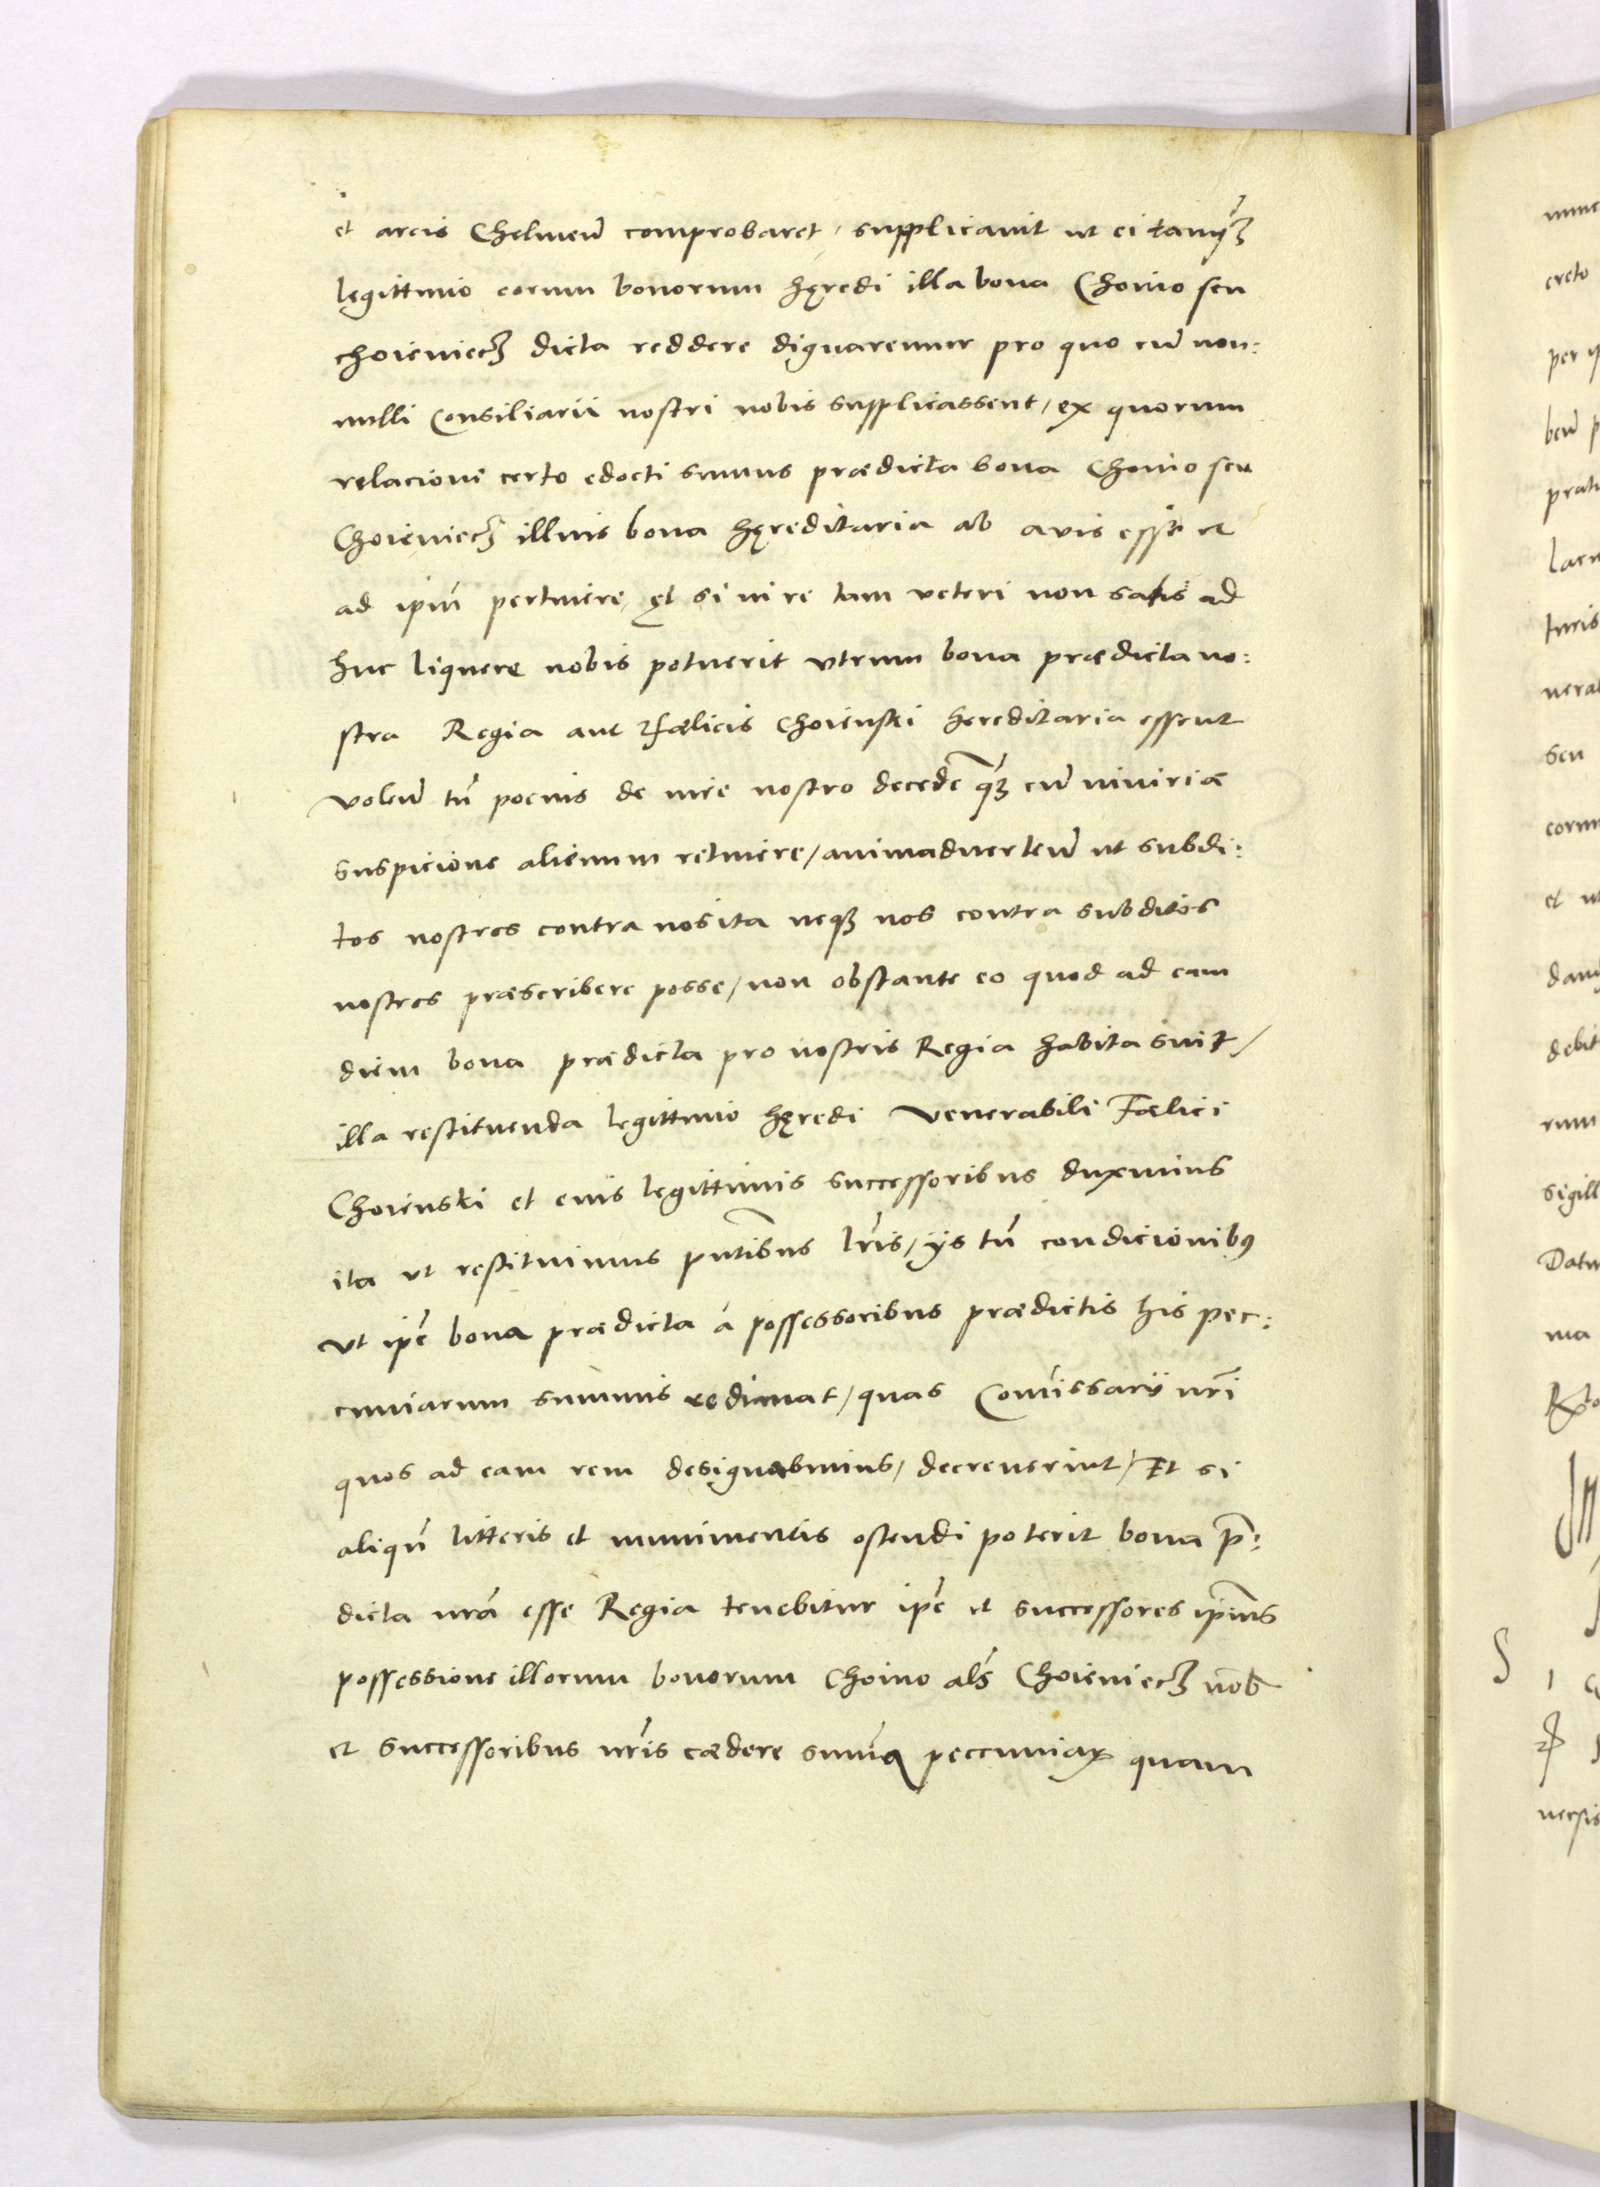 et arcis Chelmen̄ comprobaret, supplicavit ut ei tanqȝ
legittimo eorum bonorum hęredi illa bona Choino seu
choieniecȝ dicta reddere dignaremur pro quo cū non:
nulli Consiliarii nostri nobis supplicassent, ex quorum
relacioni certo edocti sumus prædicta bona Choino seu
Choieniecȝ illius bona hęreditaria ab avis esse et
ad ipm̄ pertinere, ęt si in re tam veteri non satis ad
huc liquere nobis potuerit utrum bona prædicta no:
stra Regia aut Fælicis Choienski hereditaria essent
volen̄ tn̄ potius de iure nostro decede qȝ cū iniuriæ
suspicione alienum retinere, animadverten̄ ut subdi:
tos nostros contra nos ita neqȝ nos contra subditos
nostros præscribere posse, non obstante eo quod ad eam
diem bona prædicta pro nostris Regia habita sint,
illa restituenda legittimo hęredi venerabili Fælici
Choienski et eius legittimis successoribus duximus
ita ut restituimus pn̄tibus lr̄is, ijs tn̄ condicionibꝰ
ut ip̄e bona prædicta a possessoribus prædictis his pec:
cuniarum summis redimat, quas Com̄issarij nr̄i
quos ad eam rem designabimus, decreverint, Et si
aliqn̄ litteris et munimentis ostendi poterit bona p̄:
dicta nr̄a esse Regia tenebitur ip̄e et successores ipius
possessione illorum bonorum Choino al̄s Choieniecȝ nob̄
et successoribus nr̄is cædere sum̄a peccuniaꝝ quam